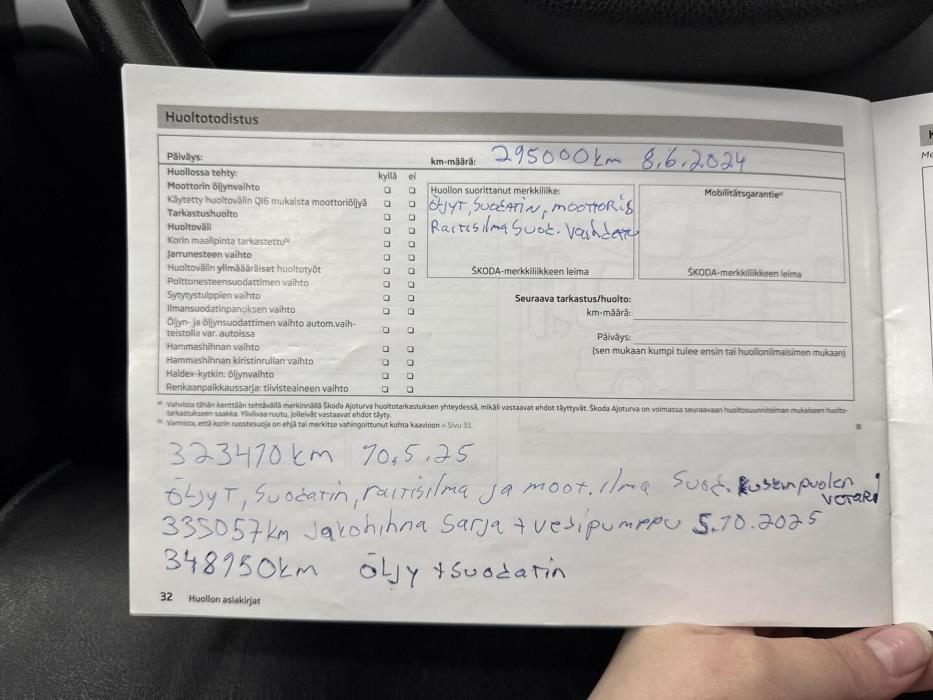 Huoltotodistus
Päiväys:
km-määrä: 295000km 8.6.2024
Huollossa tehty: kyllä ei
Moottorin öljynvaihto
Käytetty huoltovälin QI6 mukaista moottoriöljyä
Tarkastushuolto
Huoltoväli
Korin maalipinta tarkastettu²⁾
Jarrunesteen vaihto
Huoltovälin ylimääräiset huoltotyöt
Polttonesteensuodattimen vaihto
Sytytystulppien vaihto
Ilmansuodatinpanoksen vaihto
Öljyn- ja öljynsuodattimen vaihto autom.vaih-
teistolla var. autoissa
Hammashihnan vaihto
Hammashihnan kiristinrullan vaihto
Haldex-kytkin: öljynvaihto
Renkaanpaikkaussarja: tiivisteaineen vaihto
Huollon suorittanut merkkiliike:
ÖLJYT, SUODATIN, MOOTTORIS
Raitisilma Suod. Vaihdettu
ŠKODA-merkkiliikkeen leima
Mobilitätsgarantie
ŠKODA-merkkiliikkeen leima
Seuraava tarkastus/huolto:
km-määrä:
Päiväys:
(sen mukaan kumpi tulee ensin tai huollonilmaisimen mukaan)
Vahvista tähän kenttään tehtävällä merkinnällä Škoda Ajoturva huoltotarkastuksen yhteydessä, mikäli vastaavat ehdot täyttyvät. Škoda Ajoturva on voimassa seuraavaan huoltosuunnitelman mukaiseen huolto-
tarkastukseen saakka. Yliviivaa ruutu, jolleivät vastaavat ehdot täyty.
Varmista, että korin ruostesuoja on ehjä tai merkitse vahingoittunut kohta kaavioon » Sivu 33.
323410km 10.5.25
ÖLJYT, Suodatin, raitisilma ja moot.ilma Suod. kuskinpuolen
VETARI
335057km Jakohihna Sarja + vesipumppu 5.10.2025
348950km ÖLJY + Suodatin
32 Huollon asiakirjat